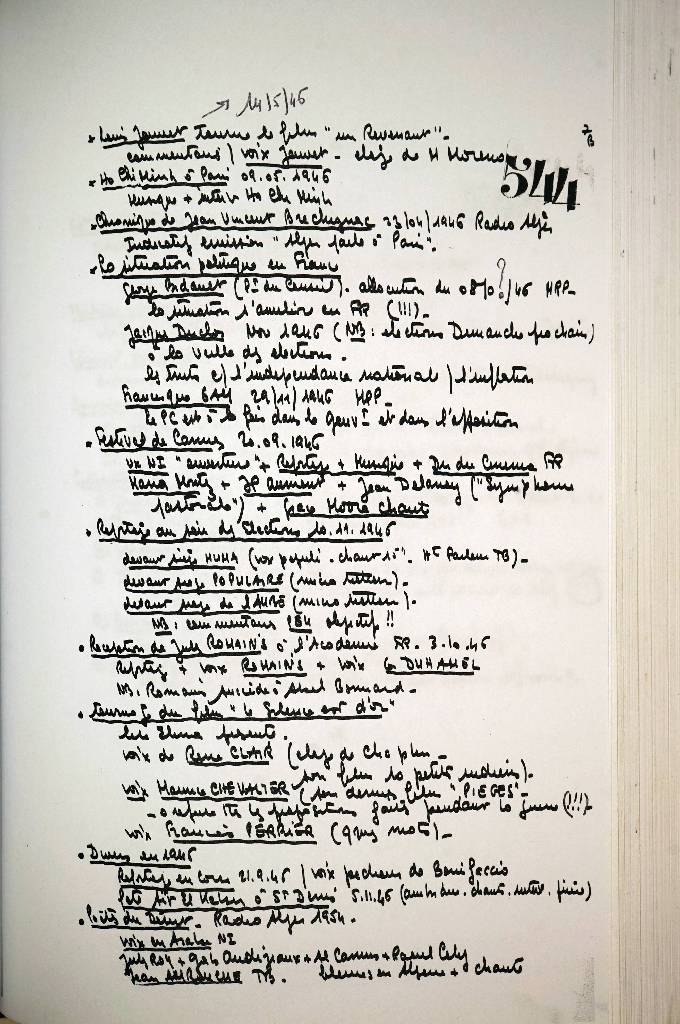 → 14/5/46
7/B
• Louis Jouvet tourne le film "un Revenant".-
commentaires / voix Jouvet - éloge de M Moreno
544
• Ho Chi Minh à Paris 09.05.1946
Musique + interv Ho Chi Minh
• Chronique de Jean Vincent Brechignac 23/04/1946 Radio Alger
Indicatif émission "Alger parle à Paris".
• La situation politique en France
George Bidault (Pt du Conseil). allocution du 08/0?/46 HPP-
la situation s'améliore en FR (!!!).-
Jacques Duclos Nov 1946 (NB: élections Dimanche prochain)
à la veille des élections.
les trusts c/ l'indépendance nationale / l'inflation
Francisque GAY 29/11/1946 HPP-
le PC est à la fois dans le gouvt et dans l'opposition
• Festival de Cannes 20.09.1946
"ouverture" + Reportage + Musique + Du Cinéma FR
+ JP Aumont + Jean Delannoy ("Symphonie
pastorale") + Grace Moore chante
• Reportage au soir des Elections 10.11.1946
devant siège HUMA (vox populi. chant 15". Ht Parleur TB)-
devant siège POPULAIRE (micro trottoir)-
devant siège de l'AUBE (micro trottoir).
NB: commentaires peu objectif !!
• Réception de Jules ROMAINS à l'Académie FR. 3.10.46
Reportage + voix ROMAINS + voix G DUHAMEL
NB: Romains succède à Abel Bonnard-
• tournage du film "le Silence est d'or"
présent.
voix de René CLAIR (éloge de Chaplin-
son film 10 petits indiens)-
voix Maurice CHEVALIER (son dernier film "PIEGES"-
- a refusé ttes les propositions faites pendant la guerre (!!!)-
voix François PERRIER (qques mots)-
• Divers en 1946
Reportage en Corse 21.9.46 / voix pêcheurs de Bonifaccio
Fête à St Denis 5.11.46 (ambiance. chant. interv. prière)
• Poètes du Désert - Radio Alger 1954-
voix en Arabe NI
Jules Roy + Gab Audisiau + A Camus + Raoul Celly
Jean AMROUCHE TB. en Algérie + chants